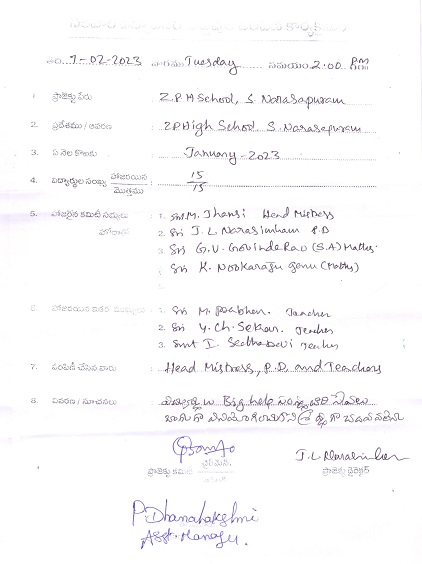 7-02-2023 వారము Tuesday సమయం 2.00 PM
1. ప్రాజెక్టు పేరు : Z.P.H School, S. Narasapuram
2. ప్రదేశము / ఆవరణ : ZPHigh School S. Narasapuram
3. ఏ నెల కొరకు : January - 2023
4. విద్యార్థుల సంఖ్య హాజరయిన 15
మొత్తము 15
5. హాజరైన కమిటీ సభ్యులు : 1. Smt.M. Jhansi Head Mistress
హోదా 2. Sri J. L Narasimham P.D
3. Sri G.V. Govinda Rao (S.A) Maths.
Sri K. Nookaraju garu (Maths)
6. హాజరయిన ఇతర 1. Sri M. Teacher
2. Sri Y. Ch. Sekar. Teacher
3. Smt I. Seetha Devi Teacher
7. పంపిణీ చేసిన వారు : Head Mistress, P.D. and Teachers
8. వివరణ / సూచనలు : Big help
ఛైర్మెన్,
ప్రాజెక్టు కమిటీ
J. L Narasimham
ప్రాజెక్టు డైరెక్టర్
P. Dhanalakshmi
Asst. Manager.